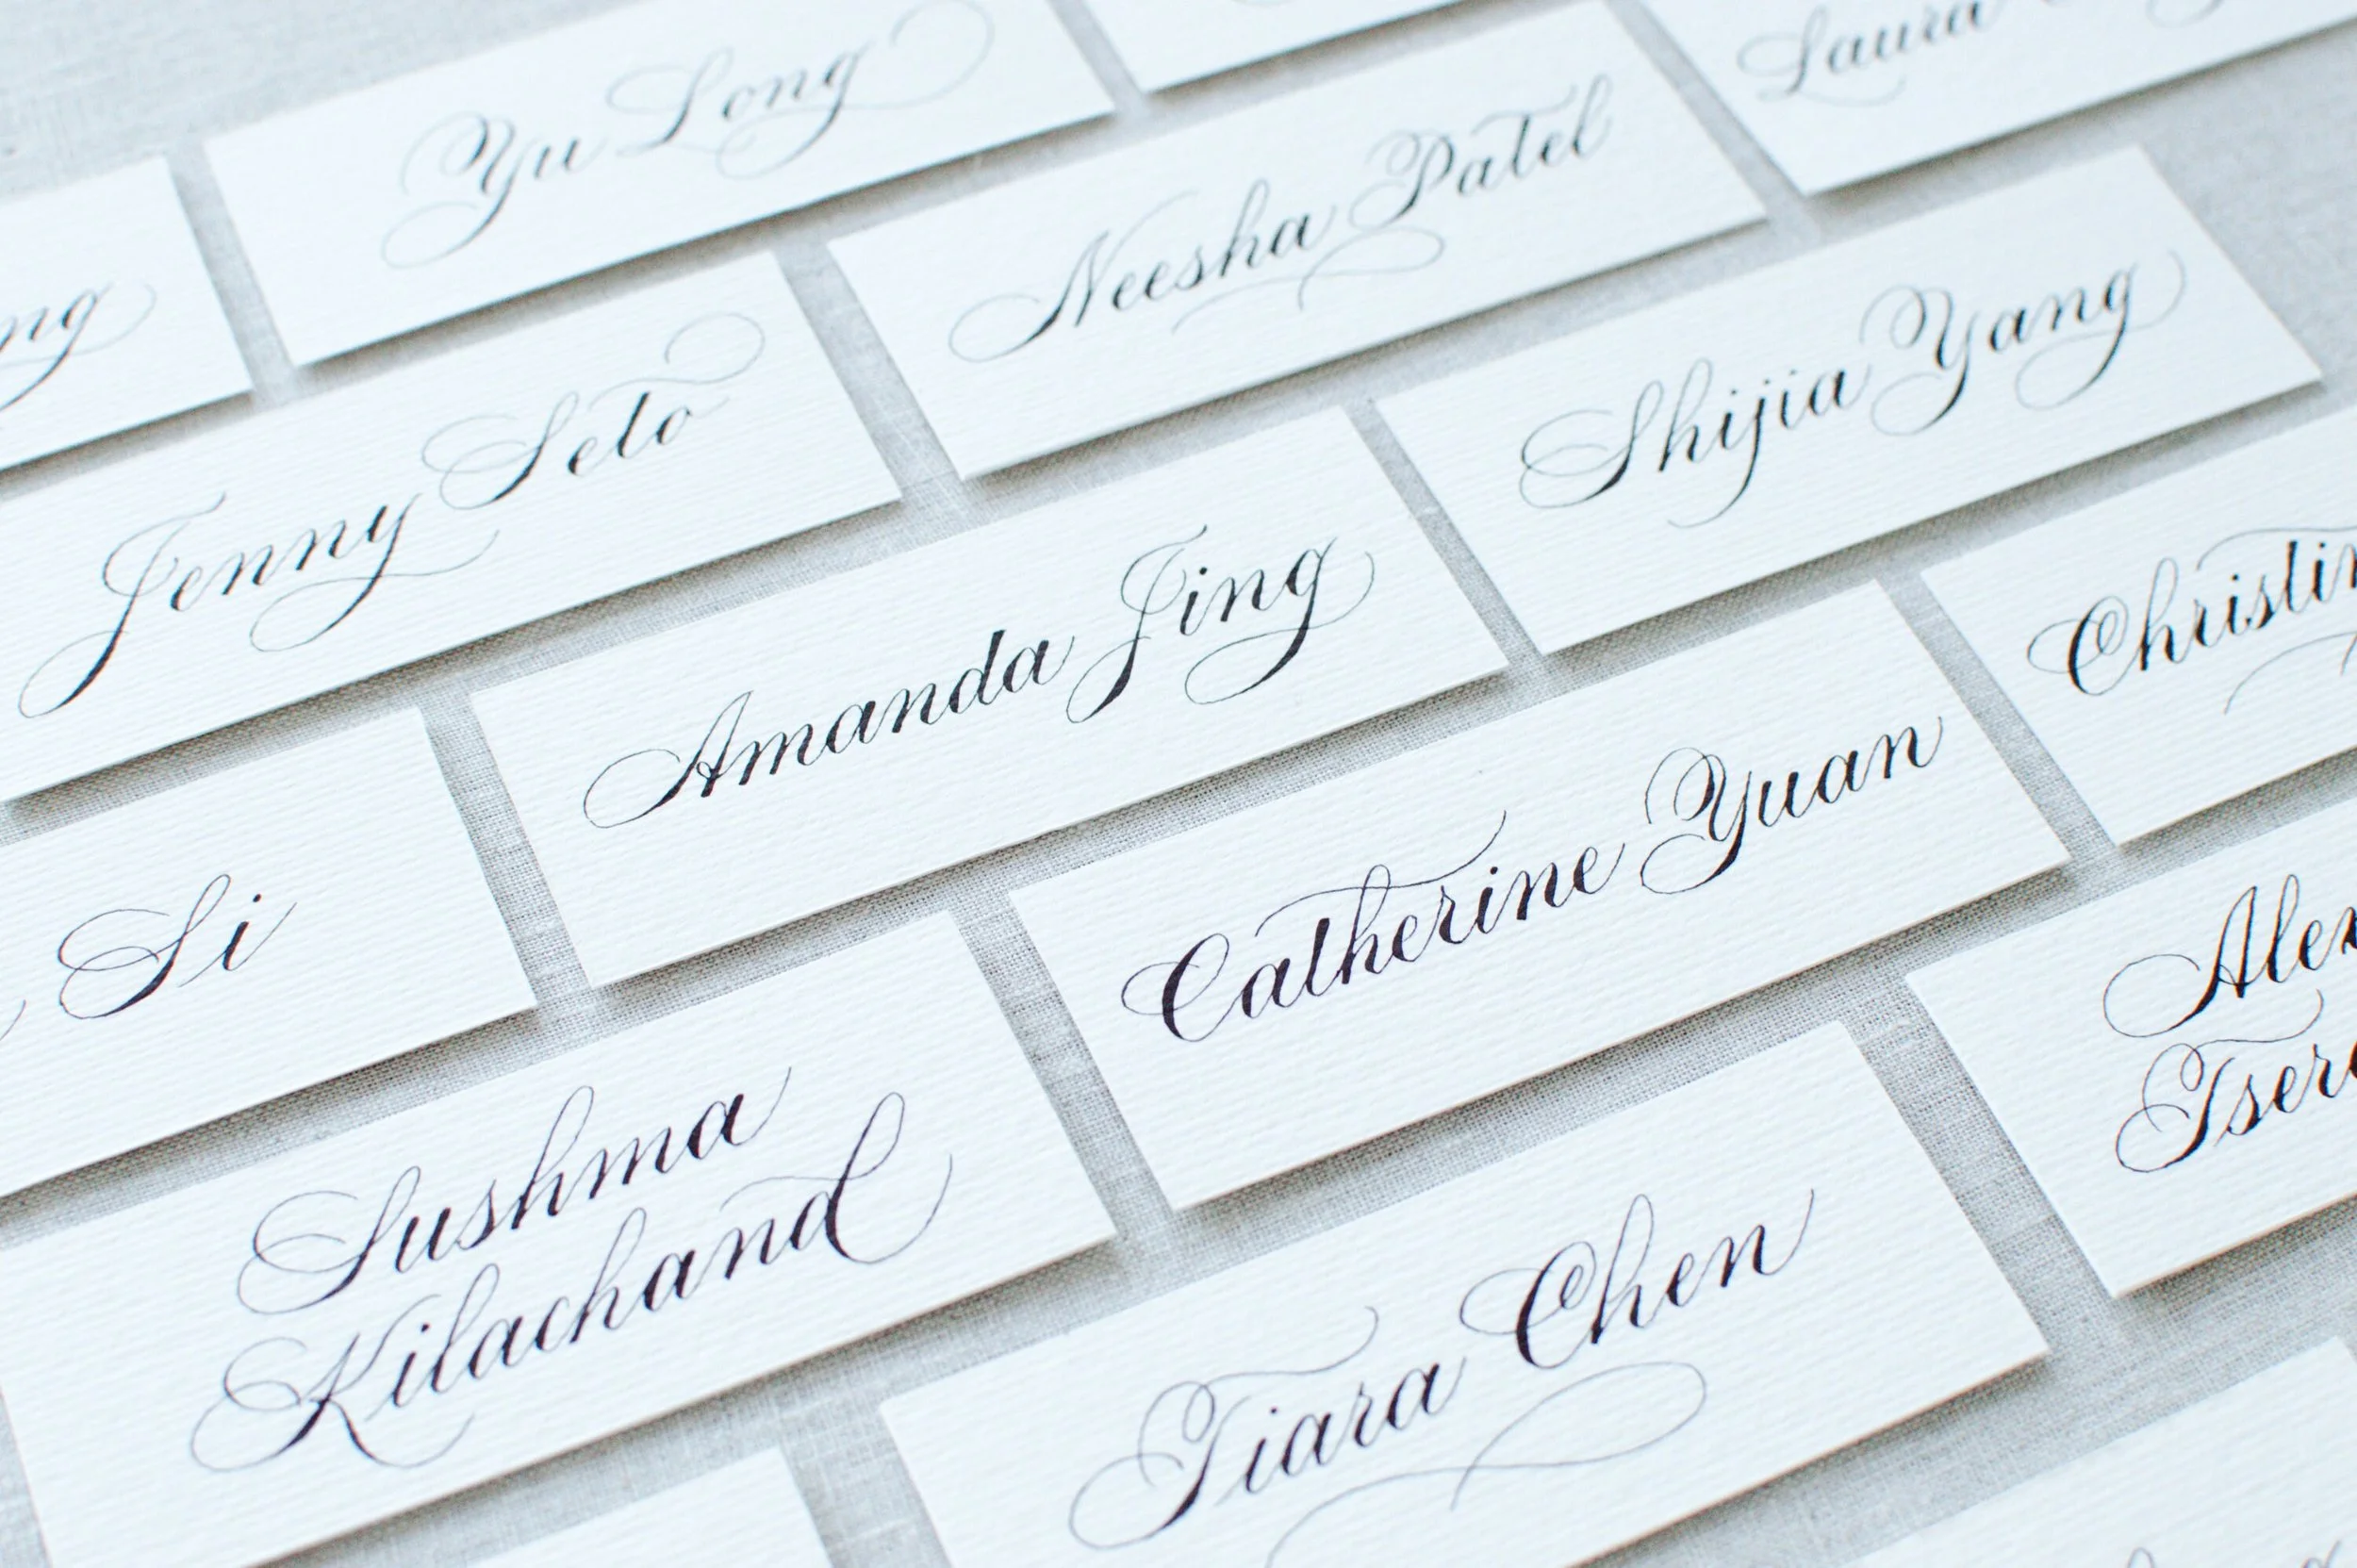 Yu Long
Laura
Neesha Patel
Jenny Seto
Shijia Yang
Amanda Jing
Si
Catherine Yuan
Sushma
Kilachand
Tiara Chen